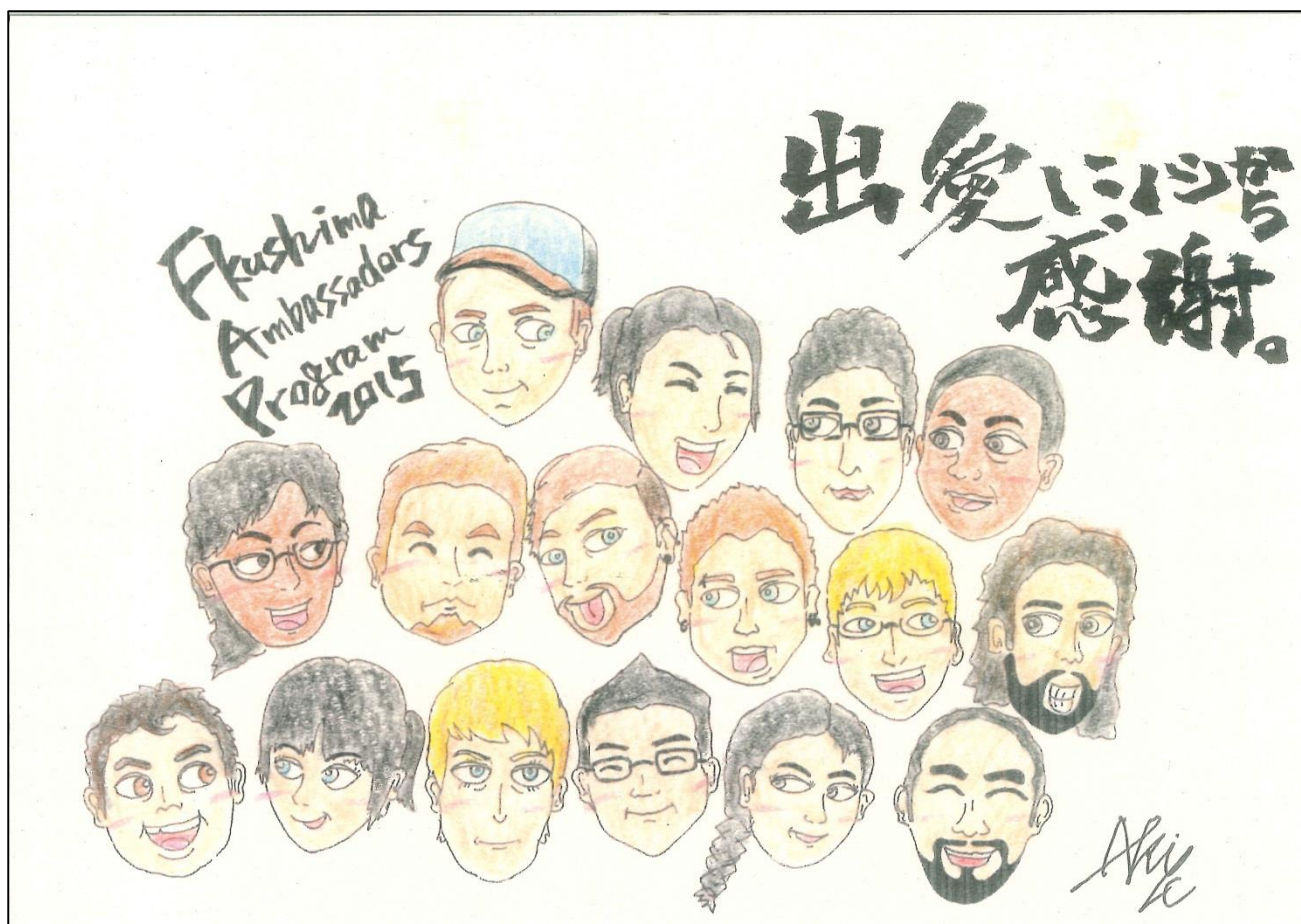 Fkushima
Ambassadors
Program
2015
出愛に、心から
感謝。
Aki